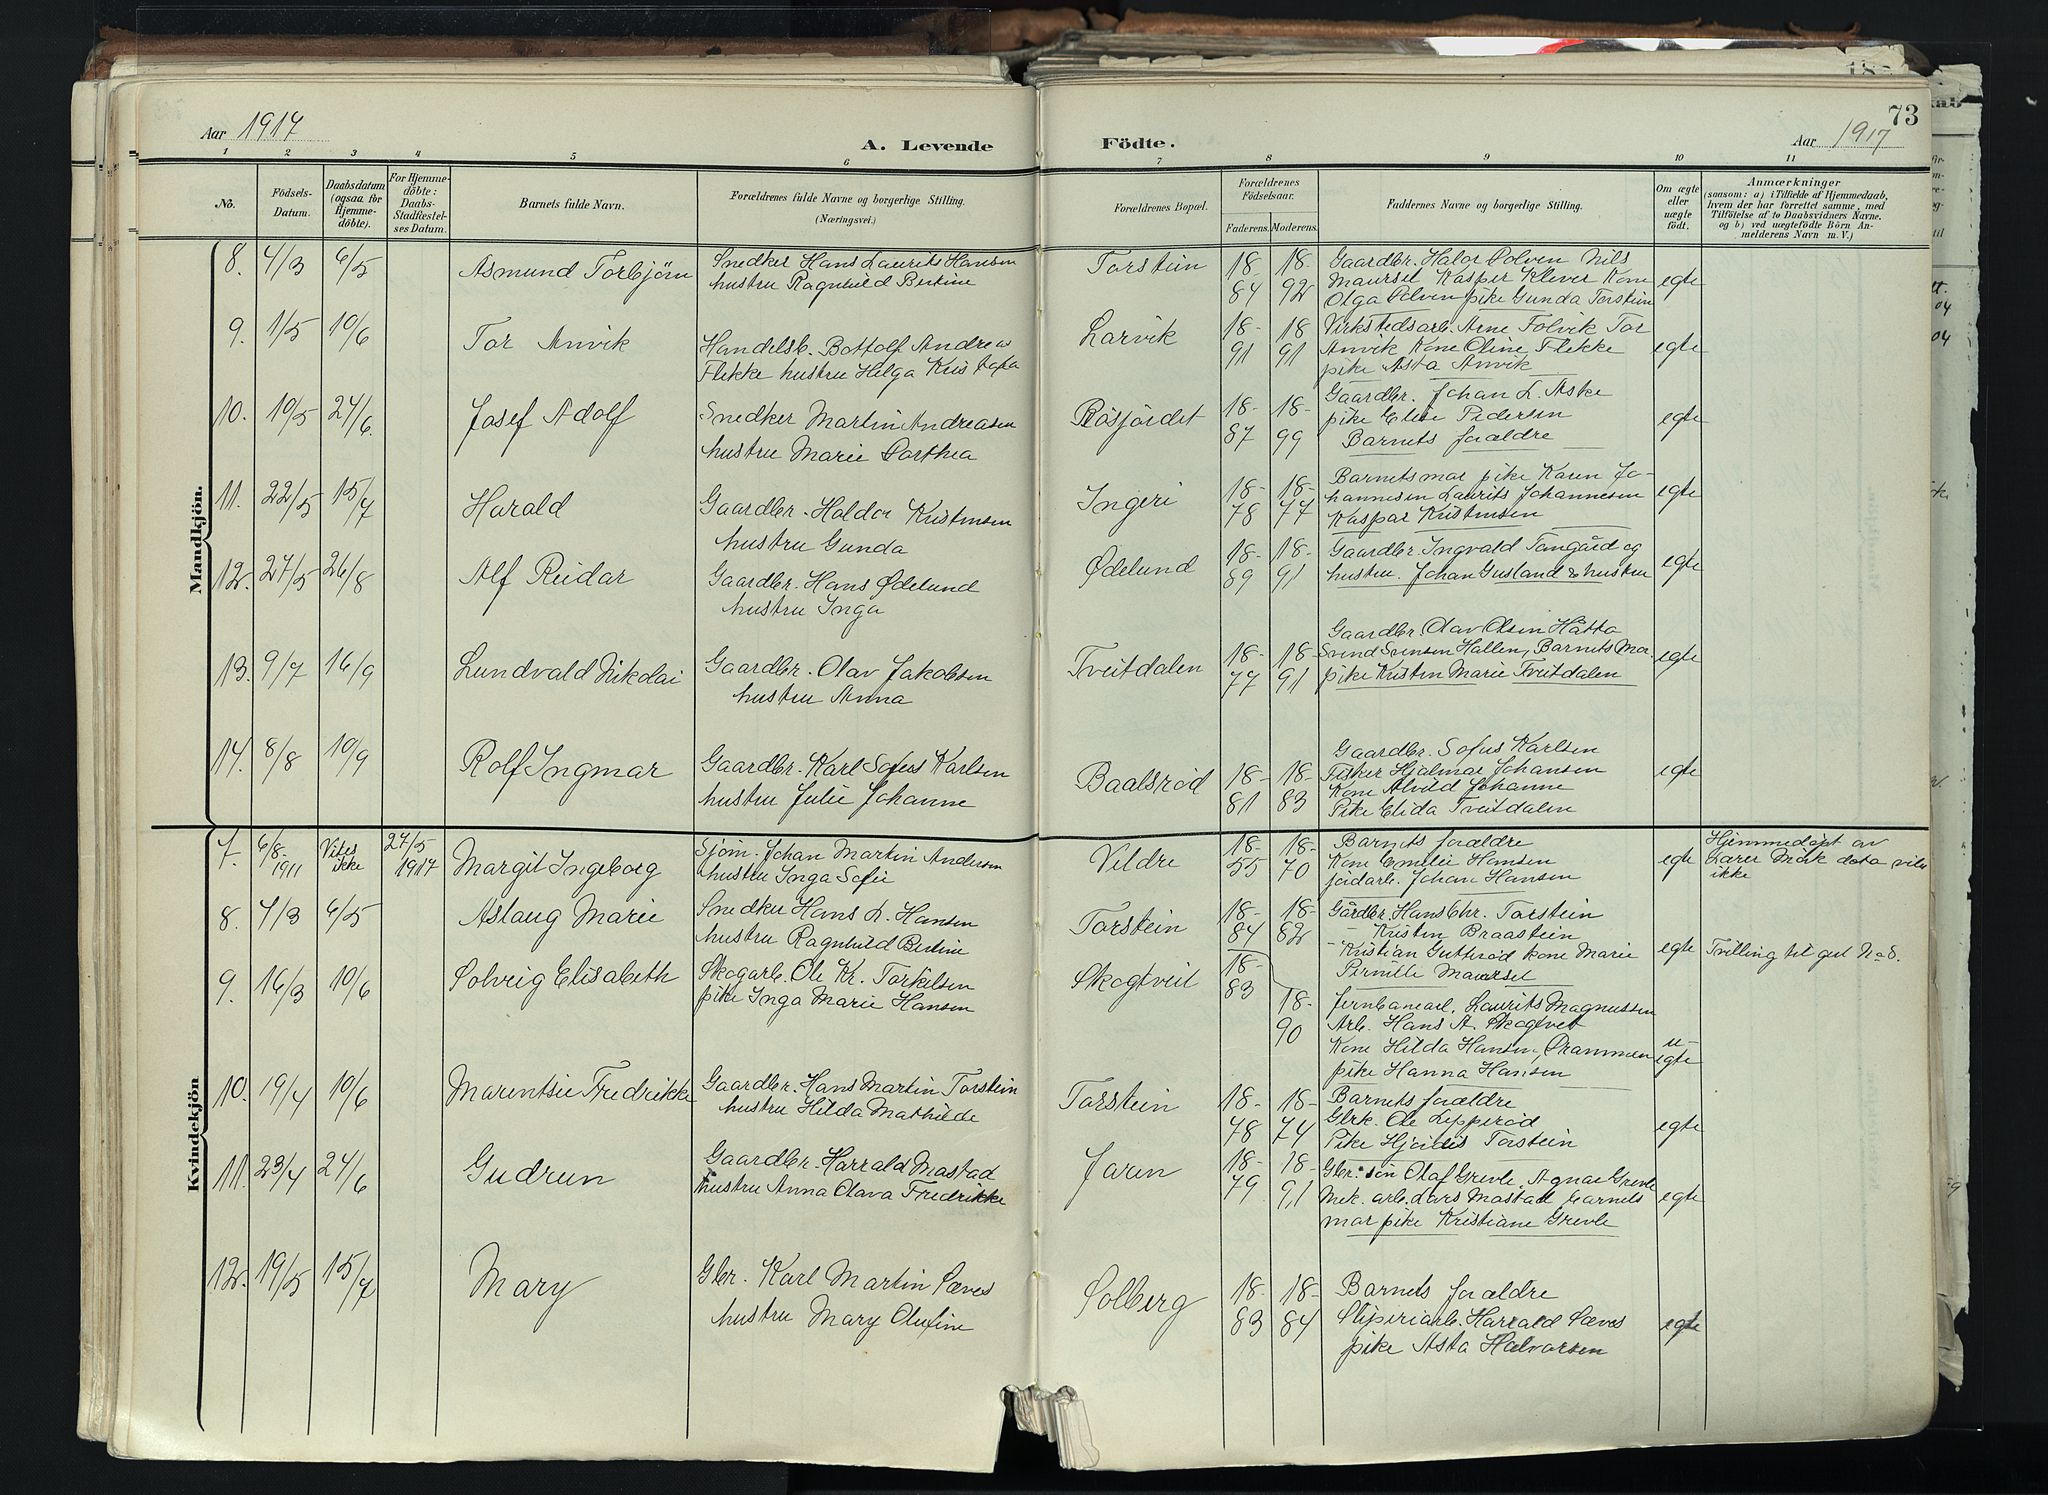 Aar 1917
A. Levende
Födte.
Aar 1917
73
1 2 3 4 5 6 7 8 9 10 11
No.
Födsels-
Datum.
Daabsdatum
(ogsaa for
Hjemme-
döbte).
For Hjemme-
döbte:
Daabs-
Stadfæstel-
ses Datum.
Barnets fulde Navn.
Forældrenes fulde Navne og borgerlige Stilling.
(Næringsvei.)
Forældrenes Bopæl.
Forældrenes
Födselsaar.
Faderens. Moderens.
Faddernes Navne og borgerlige Stilling.
Om ægte
eller
uægte
födt.
Anmærkninger
(saasom: a) i Tilfælde af Hjemmedaab,
hvem der har forrettet samme, med
Tilföielse af to Daabsvidners Navne.
og b) ved uægtefödte Börn An-
melderens Navn m. V.)
Mandkjön.
8. 4/3 6/5 Asmund Torbjørn
Snedker Hans Laurits Hansen
hustru Ragnhild Bertine
Torstein 18-84 18-92
Gaardbr. Halvor Solven Nils
Maurset Kasper Klever Kone
Olga Solven pike Gunda Torstein
egte
9. 1/5 10/6 Tor Anvik
Handelsb. Bottolf Andreas
Flikke hustru Helga Kris
Larvik 18-91 18 91
Virkstedsarb. Arne Folvik Tor
Anvik Kone Oline Flekke
pike Asta Anvik
egte
10. 10/5 24/6. Josef Adolf
Snedker Martin Andreasen
hustru Marie Dorthea
Røsjordet 18-87 18-99
Gaardbr. Johan L. Aske
pike Elise Pedersen
Barnets forældre
egte
11. 22/5 15/7 Harald
Gaardbr. Haldor Kristensen
hustru Gunda
Ingeri 18-78 18-77
Barnets mor pike Karen Jo-
hannesen Laurits Johannesen
Kaspar Kristensen
egte
12. 27/5 26/8 Alf Reidar
Gaardbr. Hans Ødelund
hustru Inga
Ødelund 18-89 18-91
Gaardbr. Ingvald Tangård og
hustru. Johan Gusland & hustru
egte
13. 9/7 16/9 Lundvald Nikolai
Gaardbr. Olav Jakobsen
hustru Anna
Tveitdalen 18-77 18-91
Gaardbr. Olav Olsen Håtta
Svend Svensen Hallen, Barnets Mor.
pike Kristen Marie Tveitdalen
egte
14. 8/8 10/9 Rolf Ingmar
Gaardbr. Karl Sofus Karlsen
hustru Julie Johanne
Baalsrød 18-81 18-83
Gaardbr. Sofus Karlsen
Fisker Hjalmar Johansen
Kone Alvild Johanne
Pike Elida Tveitdalen
egte
Kvindekjön
7. 6/8-1911 Vites ikke 27/5 1917 Margit Ingeborg
Sjøm. Johan Martin Andersen
hustru Inga Sofie
Vildre 18-55 18-70
Barnets forældre
Kone Emelie Hansen
jordarb. Johan Hansen
egte
Hjemmedøpt av
Lærer Mørk data vites
ikke
8. 4/3 6/5 Aslaug Marie
Snedker Hans L. Hansen
hustru Ragnhild Bertine
Torstein 18-84 18-82
Gårdbr. Hans Chr. Torstein
- Kristen Braastein
- Kristian Guttersrød kone Marie
Pernille Maurset
egte
Tvilling til gut No 8.
9. 16/3 10/6 Solveig Elisabeth
Skogarb. Ole Kr. Torkelsen
pike Inga Marie Hansen
Skogtveit 18-83 18-90
Jernbanearb. Laurits Magnussen
Arb. Hans A. Skogtvet
Kone Hilda Hansen, Drammen
pike Hanna Hansen
u-
egte
10. 19/4 10/6 Marentsie Fredrikke
Gaardbr. Hans Martin Torstein
hustru Hilda Mathilde
Torstein 18-78 18-74
Barnets forældre
Gbrk. Ole Lepperød
Pike Hjørdis Torstein
egte
11. 23/4 24/6 Gudrun
Gaardbr. Harrald Mastad
hustru Anna Olava Fredrikke
Jaren 18-79 18-91
Gbr. søn Olaf Grevle, Agnar Grevle
Mek. arb. Lars Mastad barnets
mor pike Kristiane Grevle
egte
12. 19/5 15/7 Mary
Gbr. Karl Martin Sæves
hustru Mary Olufine
Solberg 18-83 18-84
Barnets forældre
Sliperiarb. Harrald Sæves
pike Asta Halvorsen
egte